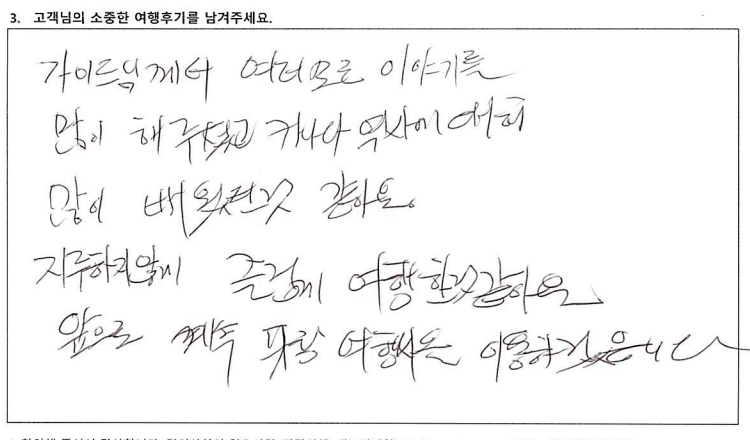 3. 고객님의 소중한 여행후기를 남겨주세요.
가이드님께서 여러모로 이야기를
많이 해주셨고 캐나다 역사에 대해
많이 배웠던것 같아요.
지루하지않게 즐겁게 여행한것같아요.
앞으로 계속 파랑 여행사를 이용하겠습니다